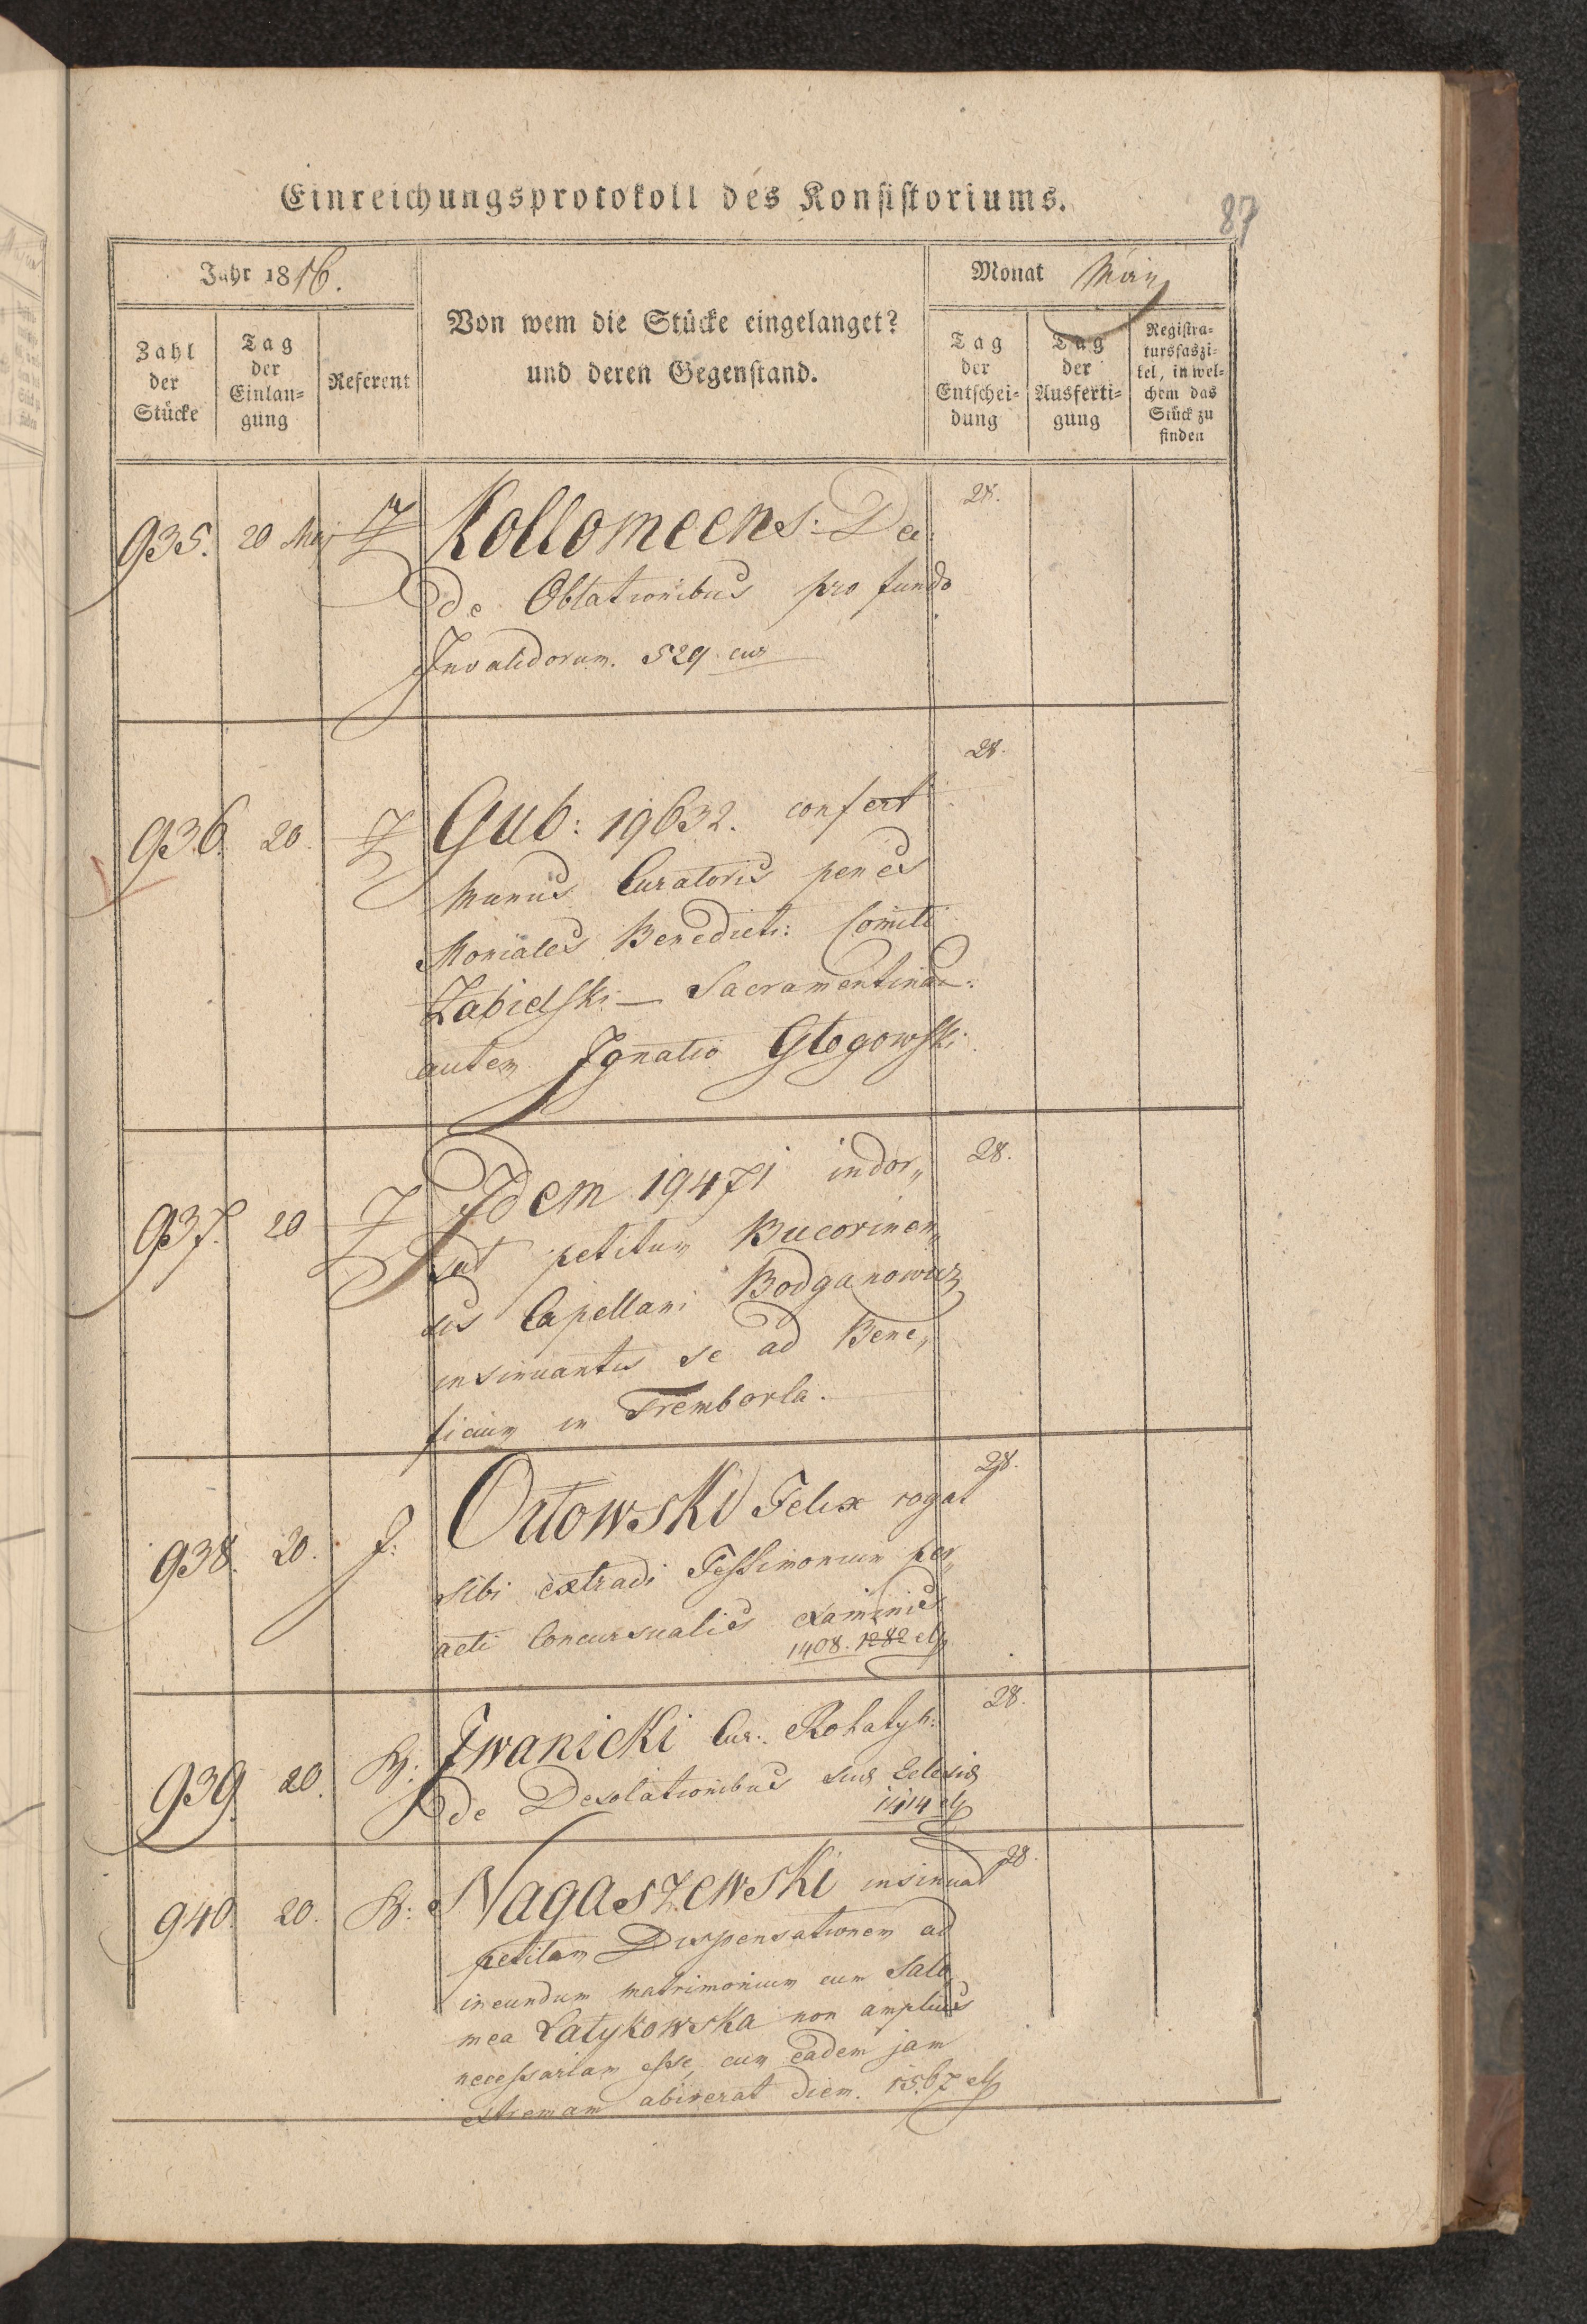 Einreichungsprotokoll des Konsistoriums.
87
Jahr 1816.
Monat May
Zahl der Stücke
Tag der Einlangung
Referent
Von wem die Stücke eingelanget?
und deren Gegenstand.
Tag der Entscheidung
Tag der Ausfertigung
Registratursfaszikel, in welchem das Stück zu finden
935. 20 Maj Z Kollomeens: Dec: 28.
de Oblationibus pro fundo
Invalidorum. 529 cur
936. 20. Z Gub: 19632. confert 28.
munus Curatoris penes
Moniales Benedict: Comiti
Zabielski — Sacramentinar:
autem Ignatio Głogowski
937. 20 Z Idem 19471 indor„ 28.
sat petitum Bucovinen„
sis Capellani Bodganowicz
insinuantis se ad Bene„
ficium in Tremborla.
938. 20. J: Orłowski Felix rogat 28.
sibi extradi Testimonium per„
acti Concursualis examinis
1408. 1282
939. 20. B: Iwanicki Cur: Rohatyn: 28.
de Desolationibus suæ Eclesiæ
1414
940. 20. B: Nagaszewski insinuat 28.
petitam Dispensationem ad
ineundum matrimonium cum Salo
mea Łatykowska non amplius
necessariam esse, cum eadem jam
extremam abiverat diem. 1567